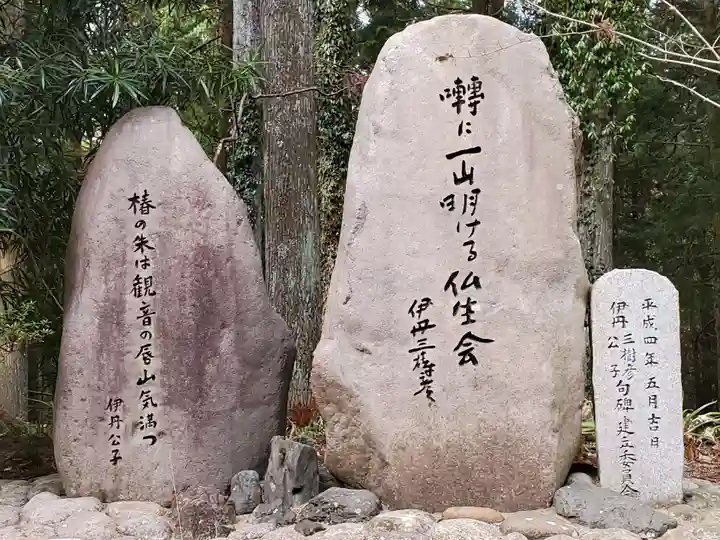 囀に一山明ける仏生会
伊丹三樹彦
椿の朱は観音の唇山気満つ
伊丹公子
平成四年五月吉日
伊丹三樹彦
公子
句碑建立委員会